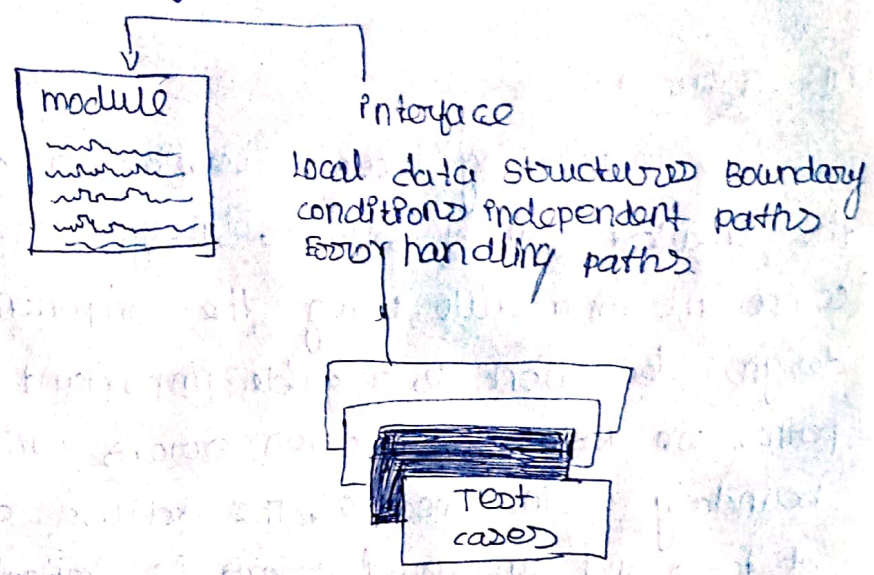 module
interface
Local data structures Boundary
conditions independent paths
Error handling paths
Test
cases